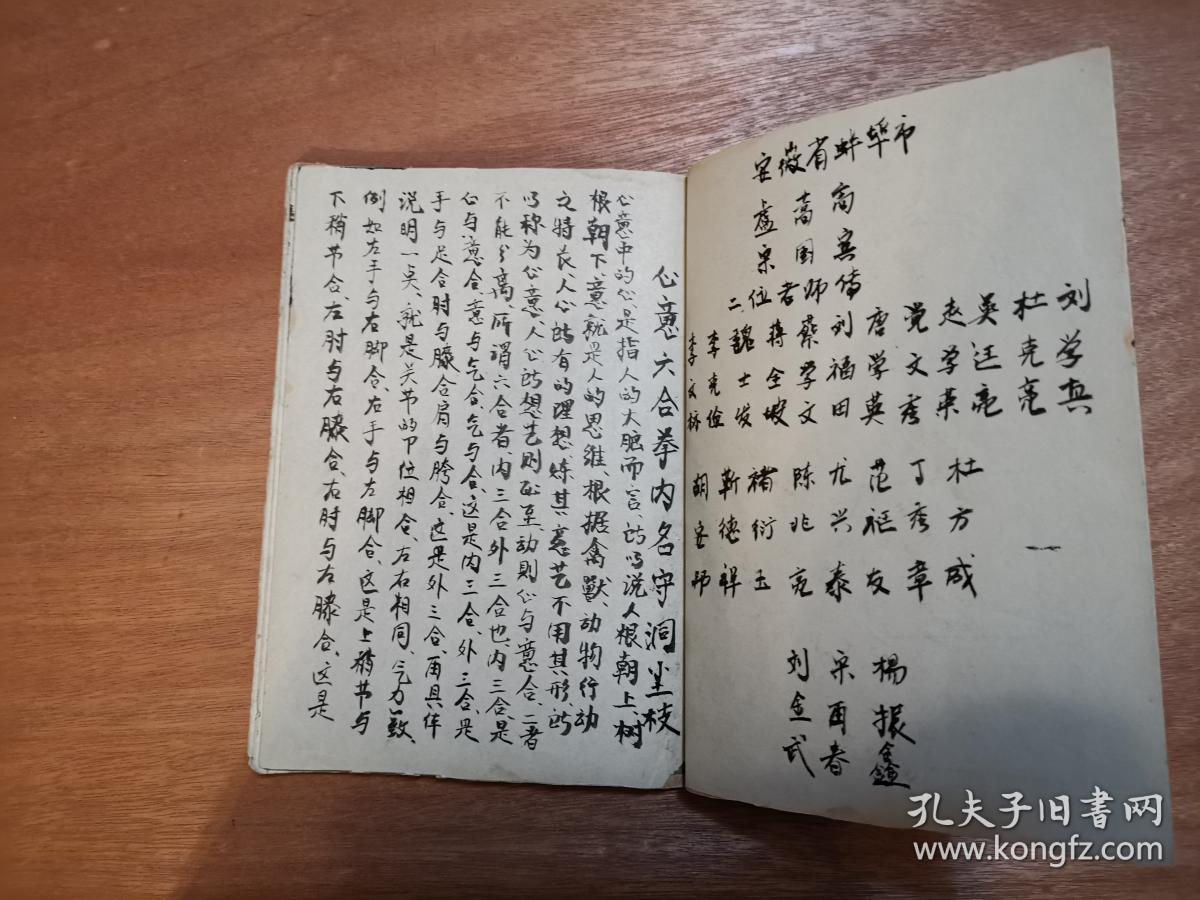 安徽省蚌埠市
卢嵩高
宋国宾
二位老师传
刘学真
杜克亮
吴廷亮
赵学英
党文秀
唐学英
刘福田
蔡学文
蒋全坡
魏士发
李克俭
李文彬
杜方成
丁秀章
范祉友
尤兴泰
陈兆亮
褚衍玉
靳德祥
胡安师
杨振鑫
宋雨春
刘金武
心意六合拳内名守洞尘枝
心意中的心、是指人的大脑而言、所以说人根朝上、树
根朝下、意就是人的思维、根据禽兽、动物行动
之特长、人心所有的理想、炼其意艺不用其形、所
以称为心意、人心所想艺则至、动则心与意合、二者
不能分离、所谓六合者、内三合外三合也、内三合、是
心与意合、意与气合、气与合、这是内三合、外三合、是
手与足合肘与膝合肩与胯合、这是外三合、再具体
说明一点、就是关节的卩位相合、左右相同、气力一致、
例如左手与右脚合、右手与左脚合、这是上稍节与
下稍节合、左肘与右膝合、右肘与左膝合、这是
孔夫子旧书网
www.kongfz.com